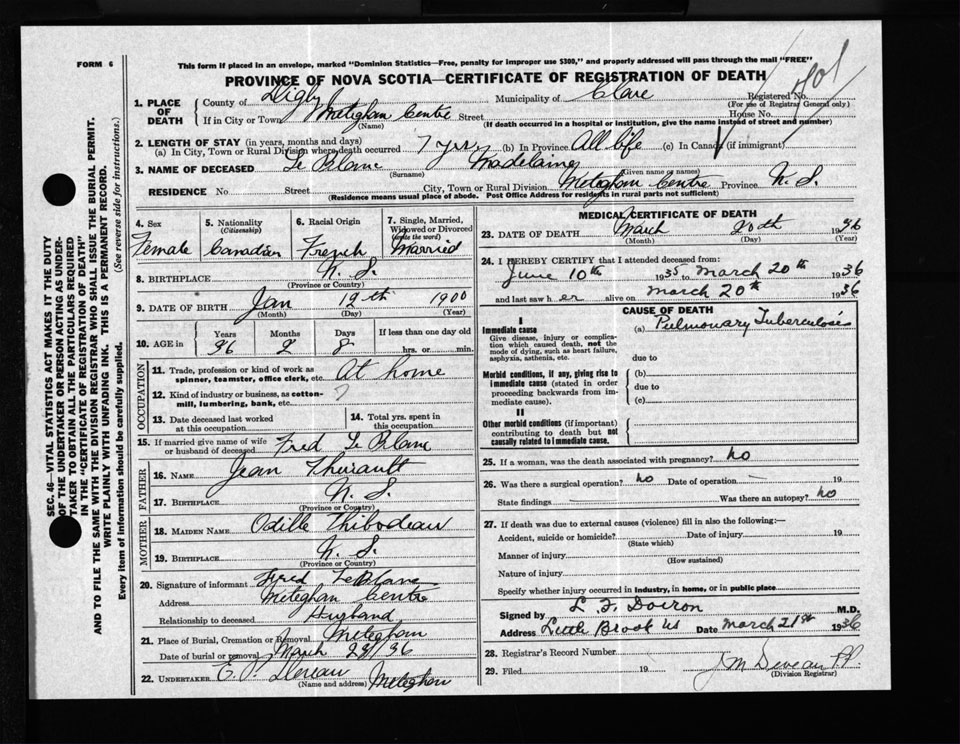 FORM 6
This form if placed in an envelope, marked "Dominion Statistics—Free, penalty for improper use $300," and properly addressed will pass through the mail "FREE"
PROVINCE OF NOVA SCOTIA—CERTIFICATE OF REGISTRATION OF DEATH
1. PLACE OF DEATH
County of Digby Municipality of Clare Registered No.
(For use of Registrar General only)
If in City or Town Meteghan Centre Street House No.
(Name) (If death occurred in a hospital or institution, give the name instead of street and number)
2. LENGTH OF STAY (in years, months and days)
(a) In City, Town or Rural Division where death occurred 7 yrs (b) In Province All life (c) In Canada (if immigrant)
3. NAME OF DECEASED Le Blanc Madelaine
(Surname) (Given name or names)
RESIDENCE No. Street City, Town or Rural Division Meteghan Centre Province N. S.
(Residence means usual place of abode. Post Office Address for residents in rural parts not sufficient)
4. Sex Female
5. Nationality (Citizenship) Canadian
6. Racial Origin French
7. Single, Married, Widowed or Divorced (write the word) Married
8. BIRTHPLACE N. S.
(Province or Country)
9. DATE OF BIRTH Jan 12th 1900
(Month) (Day) (Year)
10. AGE in Years Months Days If less than one day old
36 2 8 hrs. or min.
OCCUPATION
11. Trade, profession or kind of work as spinner, teamster, office clerk, etc. At home
12. Kind of industry or business, as cotton-mill, lumbering, bank, etc.
13. Date deceased last worked at this occupation
14. Total yrs. spent in this occupation
15. If married give name of wife or husband of deceased Fred Le Blanc
FATHER
16. NAME Jean Theriault
17. BIRTHPLACE N. S.
(Province or Country)
MOTHER
18. MAIDEN NAME Odille Thibodeau
19. BIRTHPLACE N. S.
(Province or Country)
20. Signature of informant Fred LeBlanc
Address Meteghan Centre
Relationship to deceased Husband
21. Place of Burial, Cremation or Removal Meteghan
Date of burial or removal March 23/36
22. UNDERTAKER Meteghan
(Name and address)
MEDICAL CERTIFICATE OF DEATH
23. DATE OF DEATH March 20th 1936
(Month) (Day) (Year)
24. I HEREBY CERTIFY that I attended deceased from:
June 10th 1935 to March 20th 1936
and last saw h er alive on March 20th 1936
CAUSE OF DEATH
I
Immediate cause (a) Pulmonary Tuberculosis
Give disease, injury or complication which caused death, not the mode of dying, such as heart failure, asphyxia, asthenia, etc.
due to
Morbid conditions, if any, giving rise to immediate cause (stated in order proceeding backwards from immediate cause).
(b)
due to
(c)
II
Other morbid conditions (if important) contributing to death but not causally related to immediate cause.
25. If a woman, was the death associated with pregnancy? no
26. Was there a surgical operation? no Date of operation — 19
State findings — Was there an autopsy? no
27. If death was due to external causes (violence) fill in also the following:—
Accident, suicide or homicide? Date of injury 19
(State which)
Manner of injury
(How sustained)
Nature of injury
Specify whether injury occurred in industry, in home, or in public place
Signed by L. F. Doiron M.D.
Address Little Brook NS Date March 21st 1936
28. Registrar's Record Number
29. Filed 19 J M Deveau
(Division Registrar)
SEC. 46—VITAL STATISTICS ACT MAKES IT THE DUTY
OF THE UNDERTAKER OR PERSON ACTING AS UNDER-
TAKER TO OBTAIN ALL THE PARTICULARS REQUIRED
IN THE "CERTIFICATE OF REGISTRATION OF DEATH"
AND TO FILE THE SAME WITH THE DIVISION REGISTRAR WHO SHALL ISSUE THE BURIAL PERMIT.
WRITE PLAINLY WITH UNFADING INK. THIS IS A PERMANENT RECORD.
Every item of information should be carefully supplied. (See reverse side for instructions.)